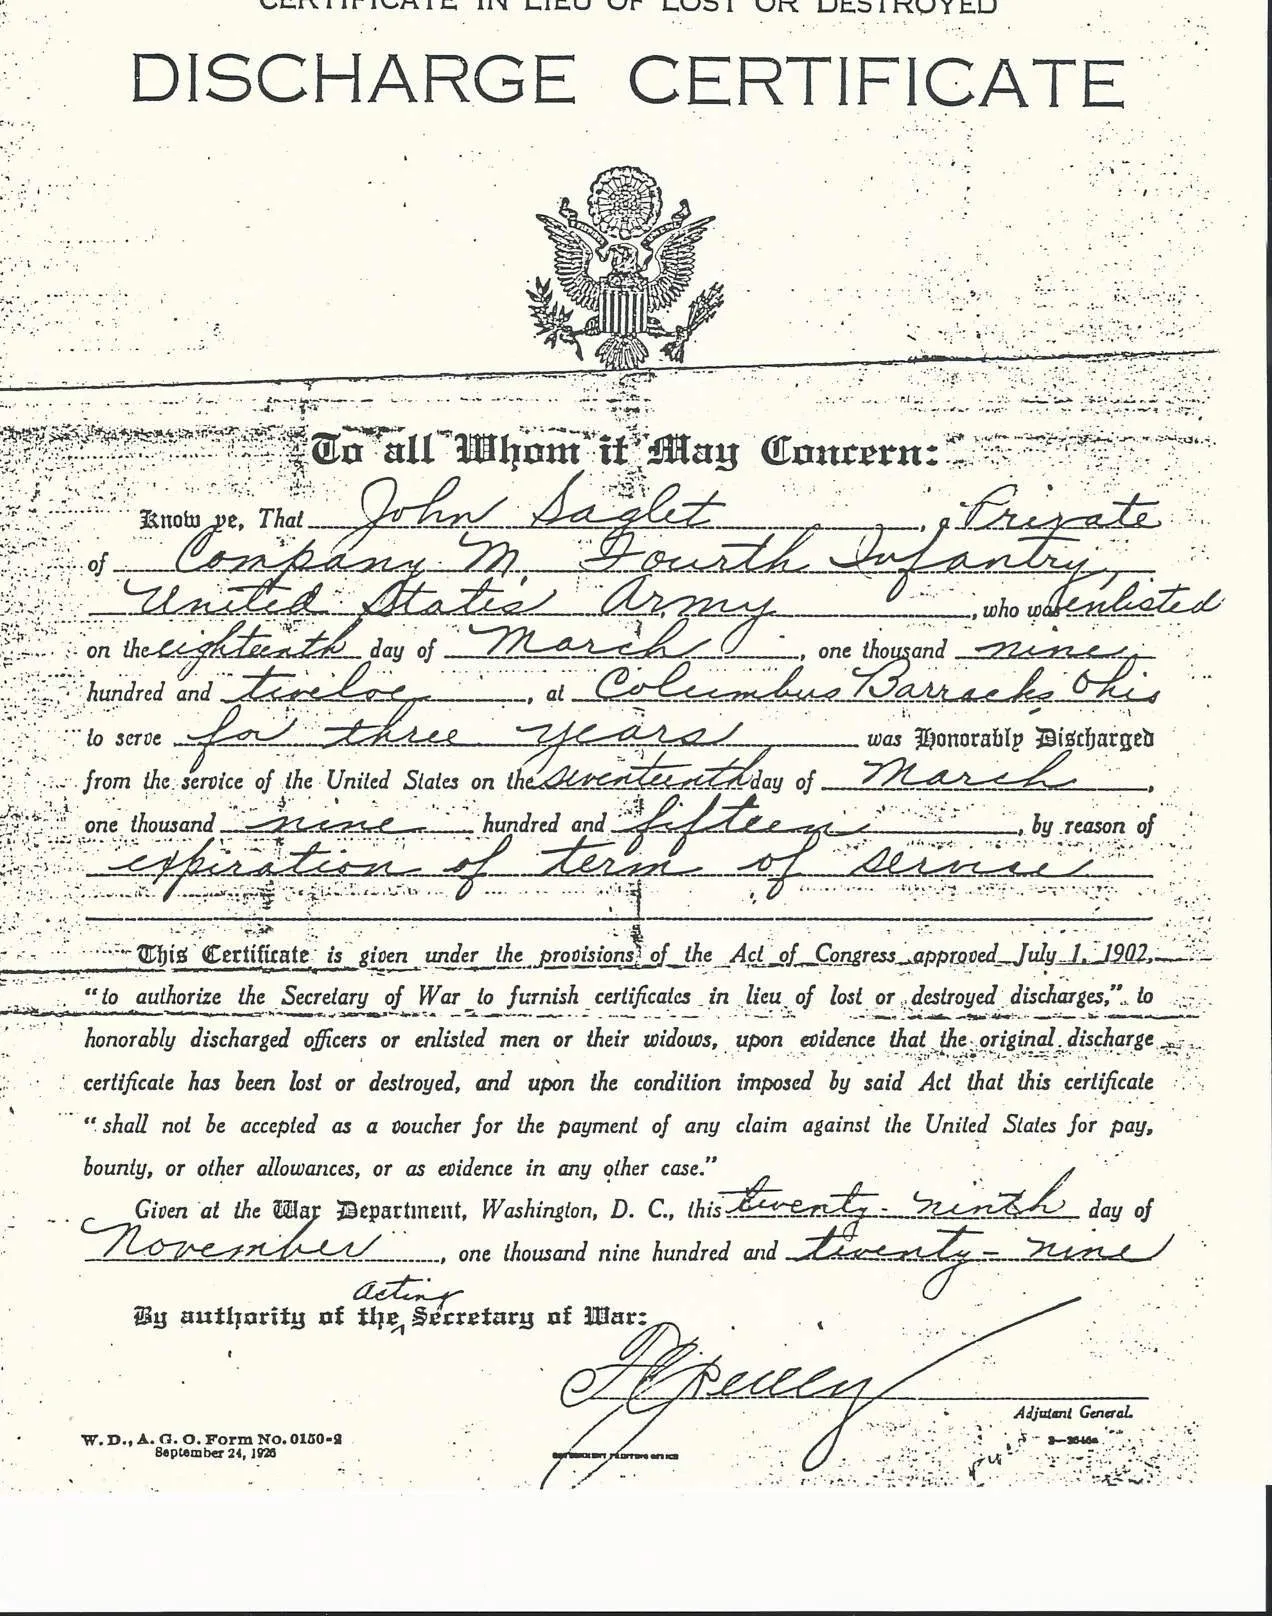 CERTIFICATE IN LIEU OF LOST OR DESTROYED
DISCHARGE CERTIFICATE
To all Whom it May Concern:
Know ye, That John Saglet, a Private
of Company M, Fourth Infantry,
United States Army, who was enlisted
on the eighteenth day of March, one thousand nine
hundred and twelve, at Columbus Barracks, Ohio
to serve for three years was Honorably Discharged
from the service of the United States on the seventeenth day of March,
one thousand nine hundred and fifteen, by reason of
expiration of term of service
This Certificate is given under the provisions of the Act of Congress approved July 1, 1902,
"to authorize the Secretary of War to furnish certificates in lieu of lost or destroyed discharges," to
honorably discharged officers or enlisted men or their widows, upon evidence that the original discharge
certificate has been lost or destroyed, and upon the condition imposed by said Act that this certificate
"shall not be accepted as a voucher for the payment of any claim against the United States for pay,
bounty, or other allowances, or as evidence in any other case."
Given at the War Department, Washington, D. C., this twenty-ninth day of
November, one thousand nine hundred and twenty-nine
By authority of the acting Secretary of War:
Adjutant General.
W. D., A. G. O. Form No. 0150-2
September 24, 1926